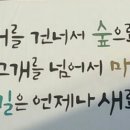 를 건너서 숲으로
고개를 넘어서 마
길은 언제나 새로